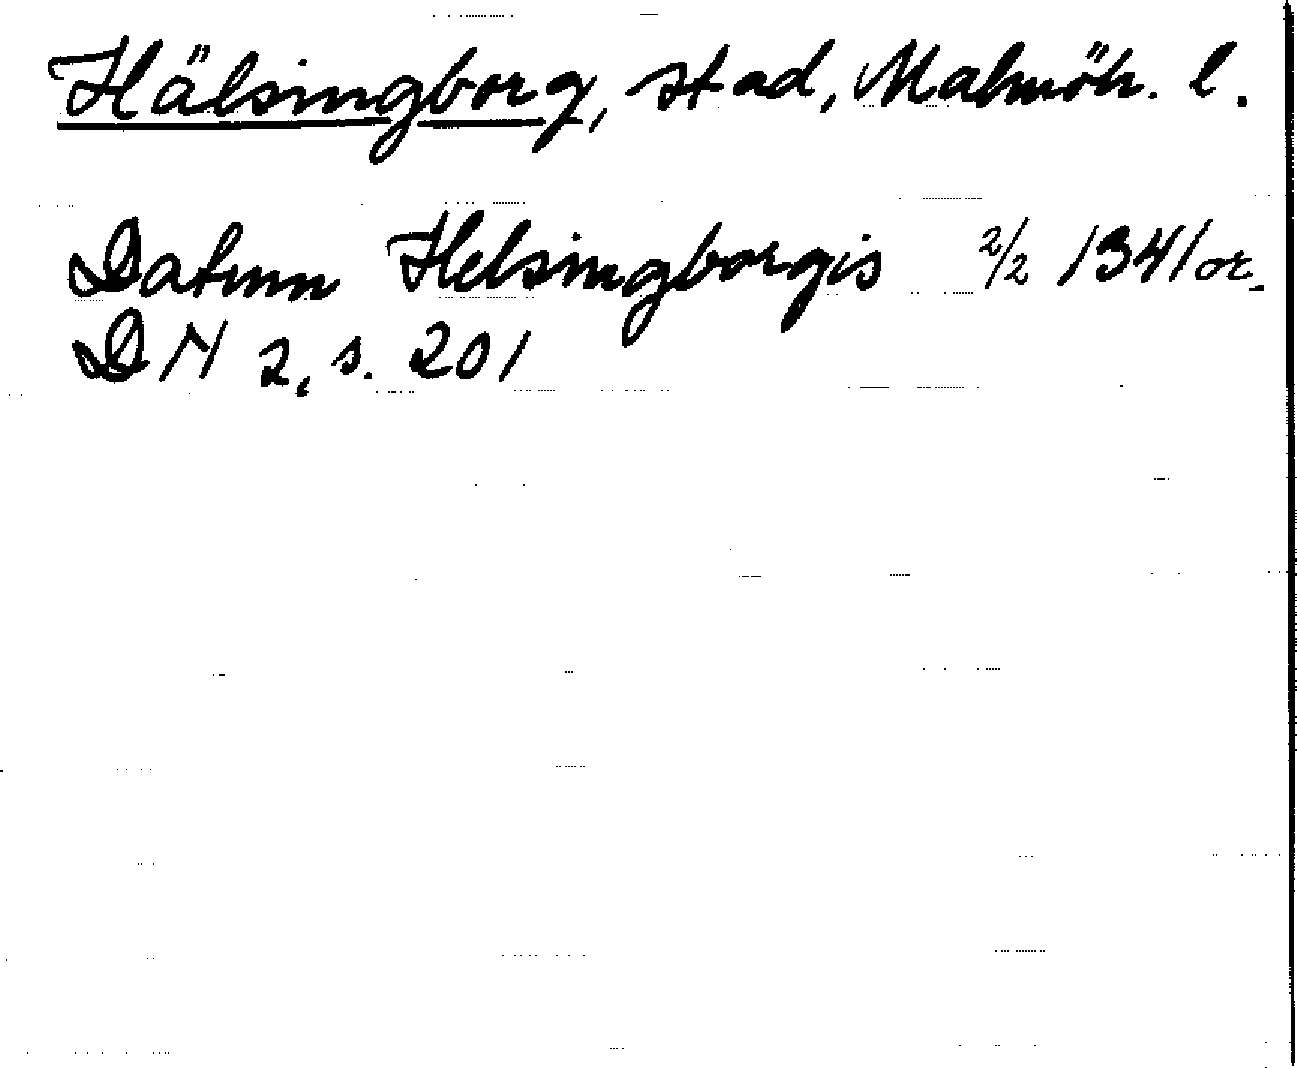 Hälsingborg, stad, Malmöh. l.
Datum Helsingborgis 2/2 1341 or.
DN 2, s. 201